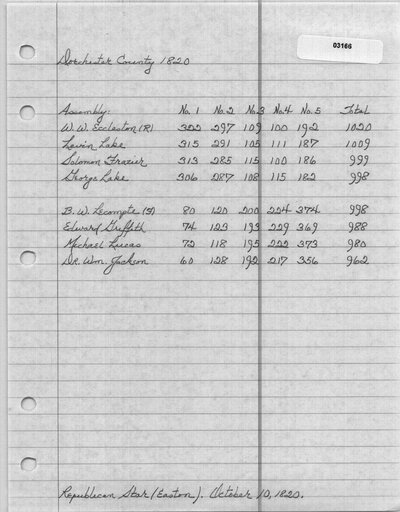 03166
Dorchester County 1820
Assembly: No. 1 No. 2 No. 3 No. 4 No. 5 Total
W. W. Eccleston (R) 322 297 109 100 192 1020
Levin Lake 315 291 105 111 187 1009
Solomon Frazier 313 285 115 100 186 999
George Lake 306 287 108 115 182 998
B. W. Lecompte (F) 80 120 200 224 374 998
Edward Griffith 74 123 193 229 369 988
Michael Lucas 72 118 195 222 373 980
Dr. Wm. Jackson 60 128 192 217 356 962
Republican Star (Easton). October 10, 1820.